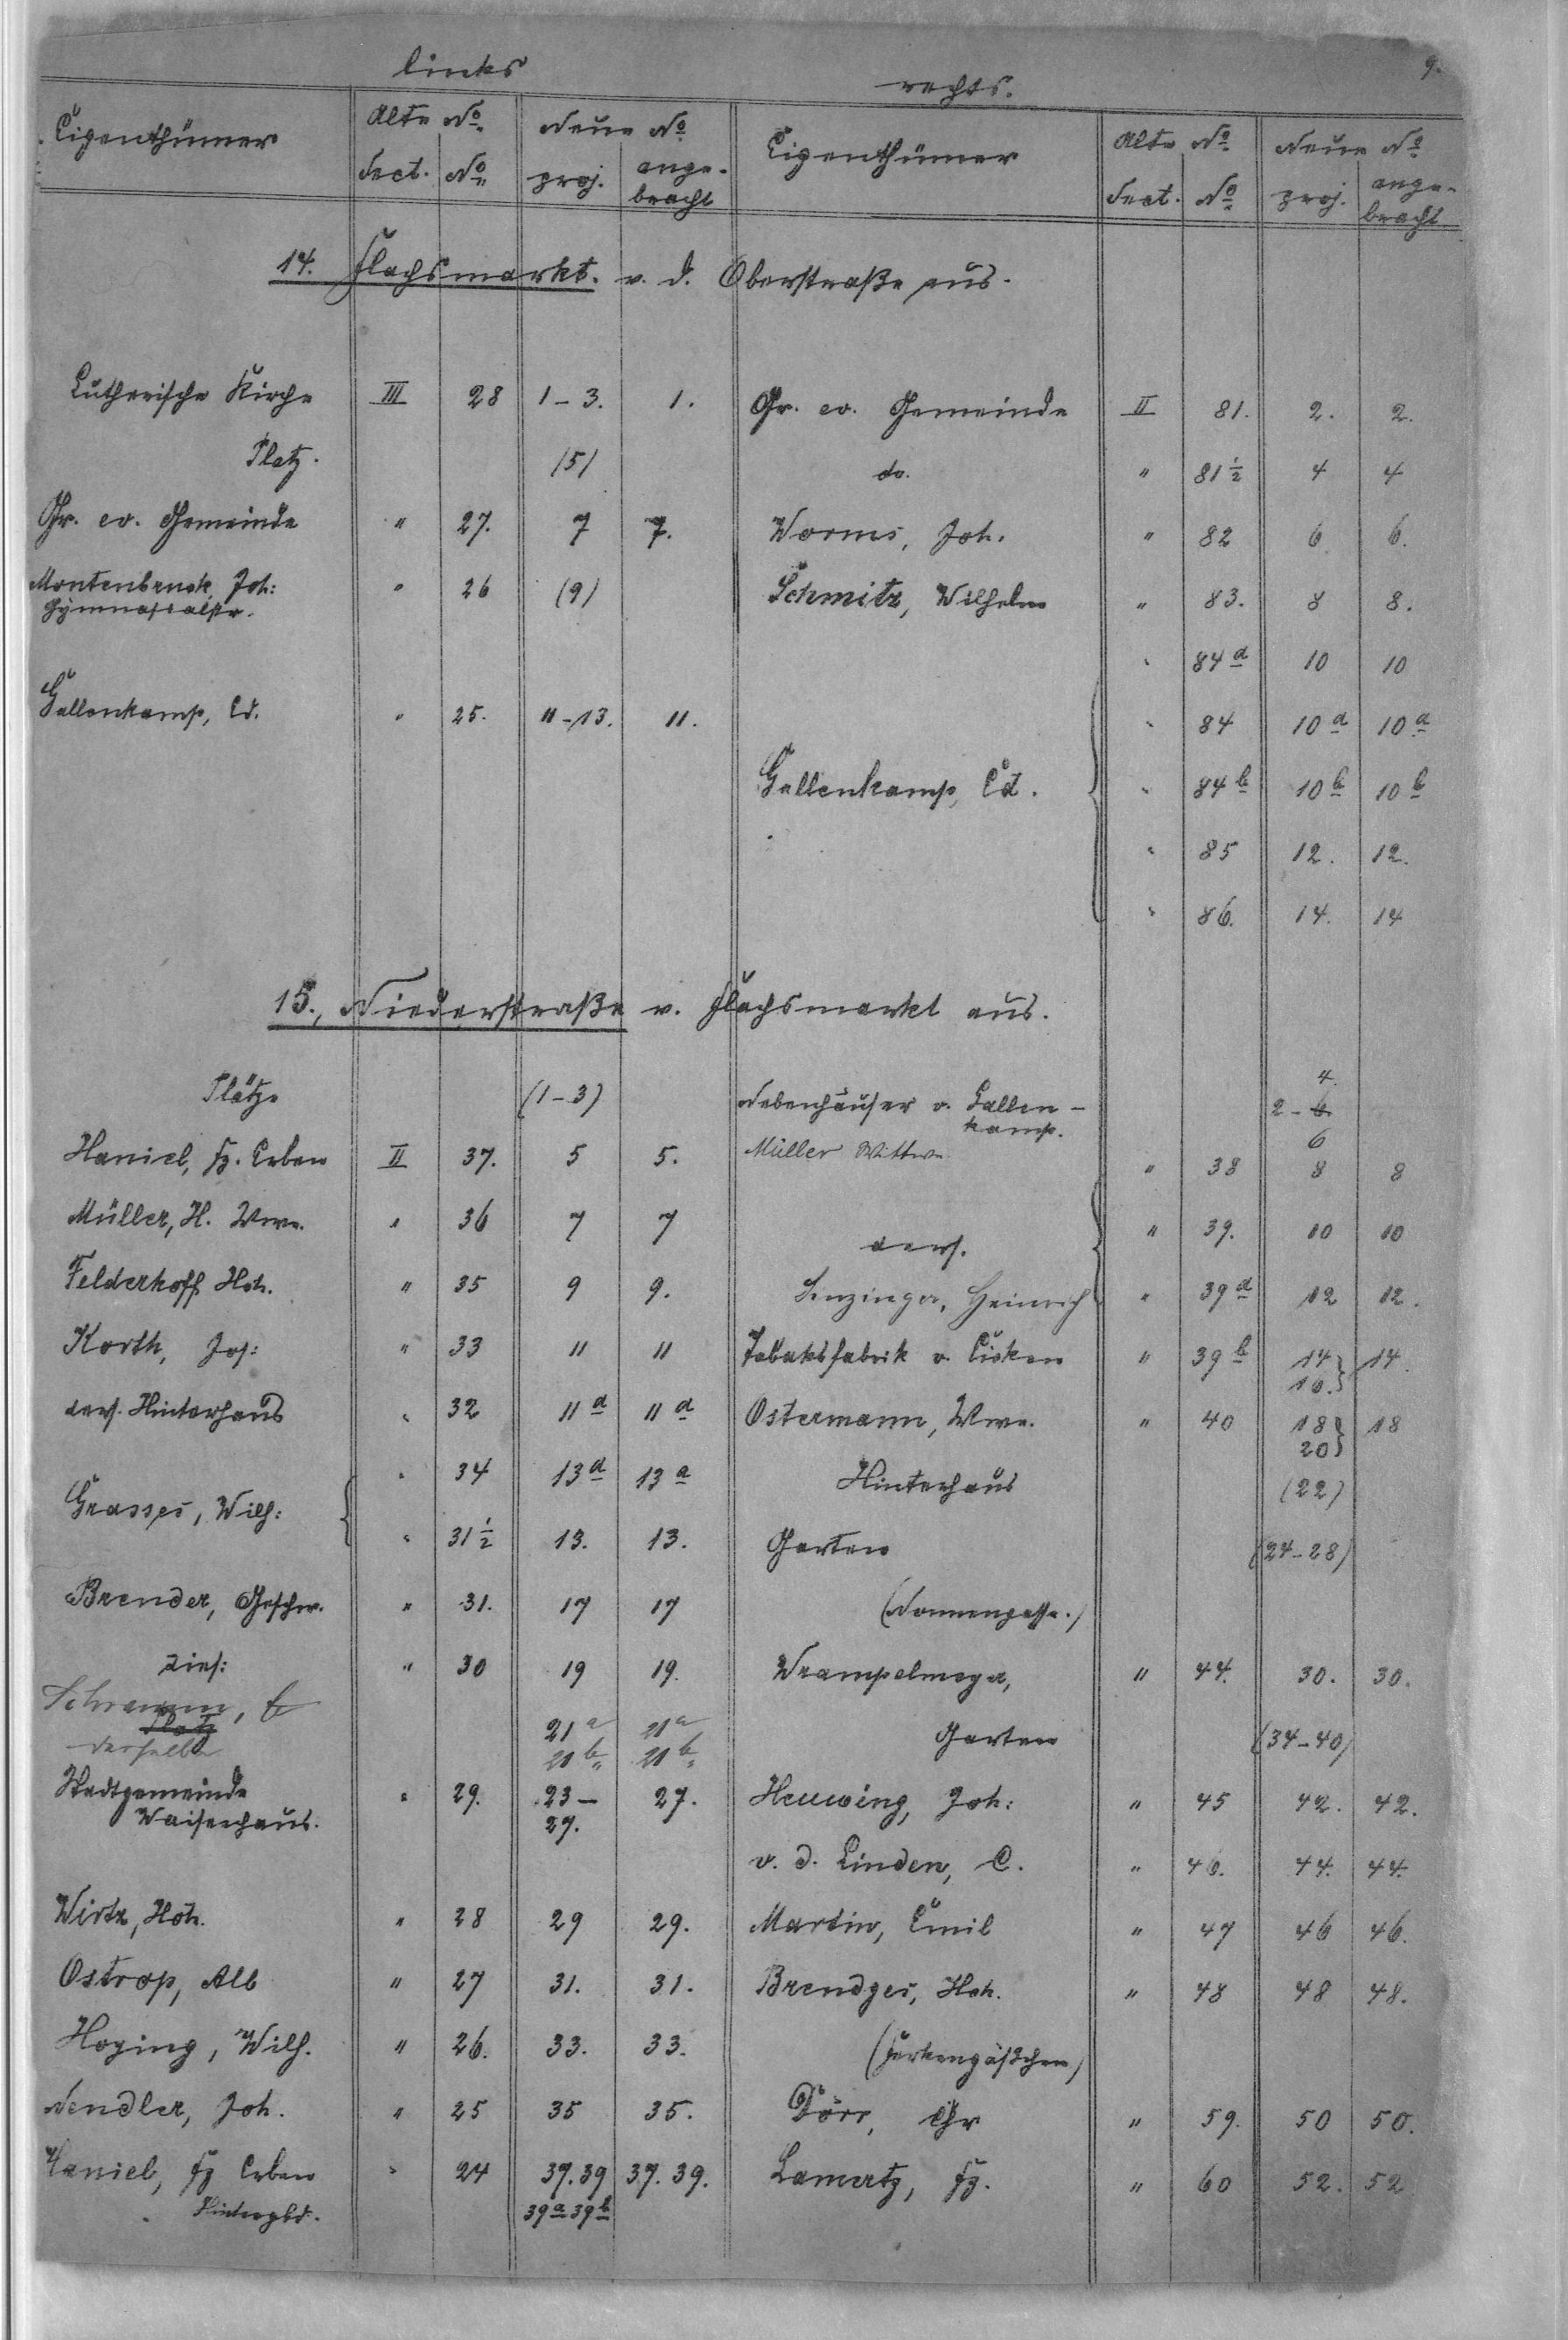 9.
links
rechts.
Eigenthümer | Alte No | Neue No | Eigenthümer | Alte No | Neue No
Sect. | No | proj. | ange-bracht | Sect. | No | proj. | ange-bracht
14. Flachsmarkt. v. d. Oberstraße aus.
Lutherische Kirche | III | 28 | 1-3. | 1. | Gr. ev. Gemeinde | II | 81. | 2. | 2.
Platz. | | | (5) | | do. | " | 81 ½ | 4 | 4
Gr. ev. Gemeinde | " | 27. | 7 | 7. | Worms, Joh. | " | 82 | 6. | 6.
Montenbruck, Joh: | " | 26 | (9) | | Schmitz, Wilhelm | " | 83. | 8 | 8.
Gymnasialstr.
| | | | | | " | 84 a | 10 | 10
Gallenkamp, Ed. | " | 25. | 11-13. | 11. | | " | 84 | 10 a | 10 a
| | | | | Gallenkamp, Ed. | " | 84 b | 10 b | 10 b
| | | | | | " | 85 | 12. | 12.
| | | | | | " | 86. | 14. | 14
15., Niederstraße v. Flachsmarkt aus.
Plätze | | | (1-3) | | Nebenhäuser v. Gallen-kamp. | | | 2-6 4. |
Haniel, Fz. Erben | II | 37. | 5 | 5. | Müller Wittwe | " | 38 | 6 8 | 8
Müller, H. Wwe. | " | 36 | 7 | 7 | ders. | " | 39. | 10 | 10
Felderhoff Hch. | " | 35 | 9 | 9. | Heinrich | " | 39 a | 12 | 12.
Korth, Jos: | " | 33 | 11 | 11 | Tabaksfabrik v. | " | 39 b | 14 16. | 14.
ders. Hinterhaus | " | 32 | 11 a | 11 a | Ostermann, Wwe. | " | 40 | 18 20 | 18
Grasses, Wilh: | " | 34 | 13 a | 13 a | Hinterhaus | | | (22) |
| " | 31 ½ | 13. | 13. | Garten | | | (24-28) |
Brender, Geschw. | " | 31. | 17 | 17 | (Nonnengasse.)
dies: | " | 30 | 19 | 19. | Wrampelmeyer, | " | 44. | 30. | 30.
Schramm,
Platz | | | 21 a | 21 a | Garten | | | (34-40) |
derselbe | | | 21 b | 21 b
Stadtgemeinde | " | 29. | 23- | 27. | Heuwing, Joh: | " | 45 | 42. | 42.
Waisenhaus. | | | 27.
| | | | | v. d. Linden, C. | " | 46. | 44. | 44.
Wirtz, Hch. | " | 28 | 29 | 29. | Martin, Emil | " | 47 | 46 | 46.
Ostrop, Alb | " | 27 | 31. | 31. | Brendges, Hch. | " | 48 | 48 | 48.
Hoging, Wilh. | " | 26. | 33. | 33. | (Ferkengäßchen)
Nendler, Joh. | " | 25 | 35 | 35. | Dörr, Chr | " | 59. | 50 | 50.
Haniel, Fz Erben | " | 24 | 37.39 | 37. 39. | Lamertz, Fz. | " | 60 | 52. | 52
" Hintergbd. | | | 39a 39b